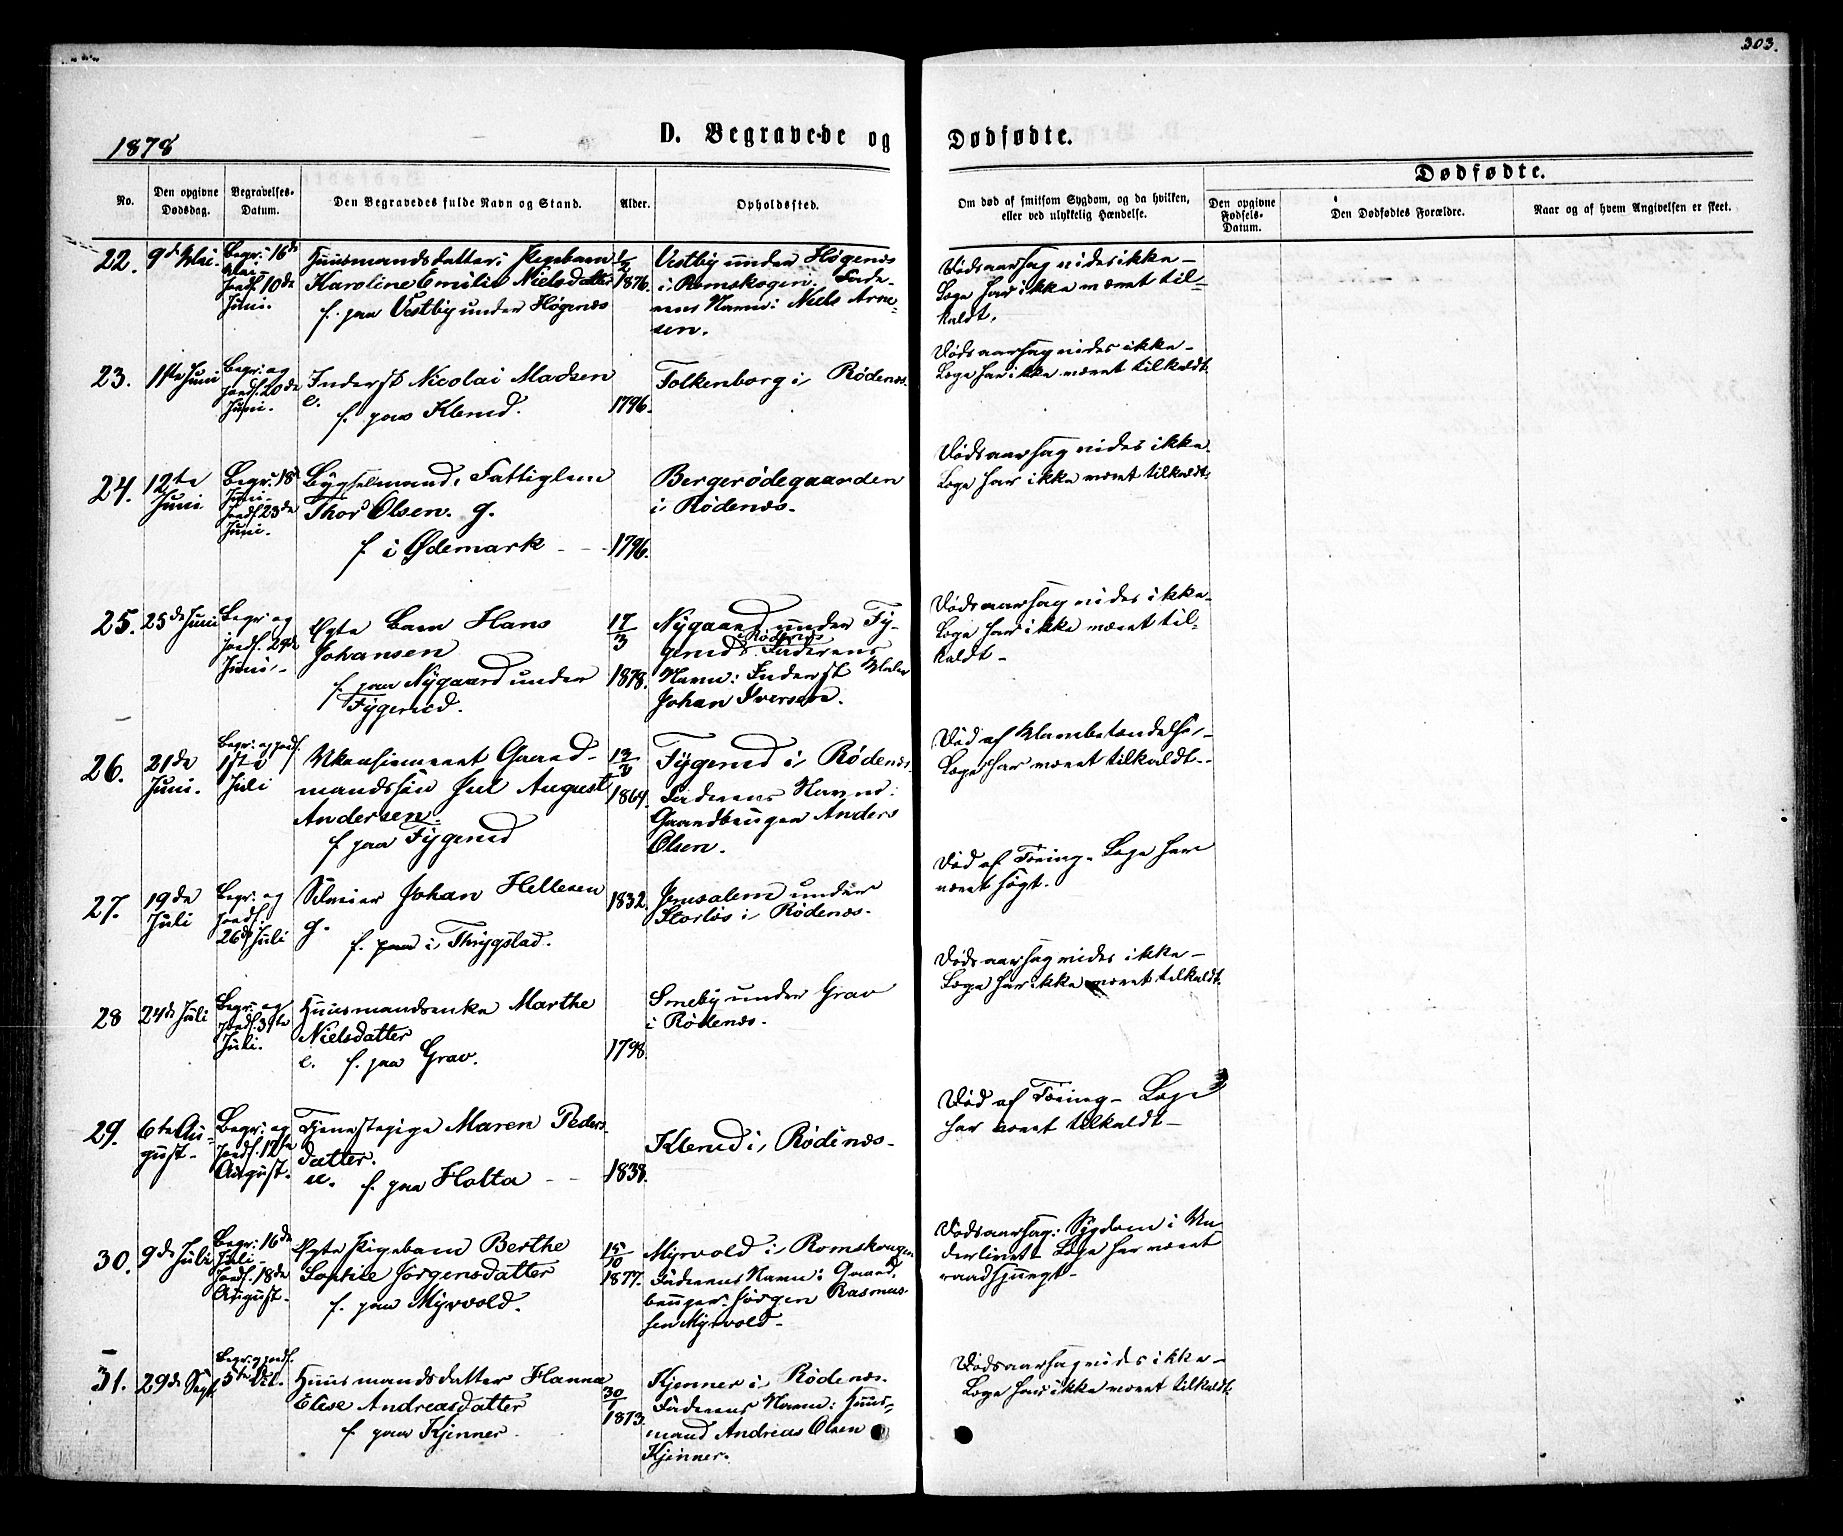 303.
1878
D. Begravede og Dødfødte.
Dødfødte.
No.
Den opgivne Dødsdag.
Begravelses-Datum.
Den Begravedes fulde Navn og Stand.
Alder.
Opholdssted.
Om død af smitsom Sygdom, og da hvilken, eller ved ulykkelig Hændelse.
Den opgivne Fødsels-Datum.
Den Dødfødtes Forældre.
Naar og af hvem Angivelsen er skeet.
22. 9de Mai.
Begr: 16de
Mai
Jordf. 10de
Juni.
Huusmandsdatter, Pigebarn
Karoline Emilie Nielsdatter
f. paa Vestby under Høgenæs
1876.
Vestby under Høgenæs
i Romskogen. Fade-
rens Navn: Niels Arne-
sen.
Dødsaarsag vides ikke –
Læge har ikke været til-
kaldt.
23. 11te Juni
Begr: og
Jordf. 20de
Juni.
Inderst Nicolai Madsen
e.
f. paa Klerud.
1796.
Folkenborg i Rødenæs.
Dødsaarsag vides ikke –
Læge har ikke været tilkaldt.
24. 12te
Juni
Begr: 18de
Juni.
Jordf. 23de
Juni.
Bygselmand, Fattiglem
Thor Olsen. g.
f. i Ødemark
1796.
Bergerødegaarden
i Rødenæs.
Dødsaarsag vides ikke.
Læge har ikke været tilkaldt.
25. 25de Juni
Begr: og
Jordf. 29de
Juni.
Ægte Barn Hans
Johansen
f. paa Nygaard under
Tygerud.
17/3
1878.
Nygaard under Ty-
gerud i Rødenæs. Faderens
Navn: Inderst Maler
Johan Iversen.
Dødsaarsag vides ikke –
Læge har ikke været til-
kaldt –
26. 21de
Juni.
Begr: og Jordf.
1ste
Juli
Ukonfirmeret Gaard-
mandssøn Jul August
Andersen.
f. paa Tygerud
1864.
Tygerud i Rødenæs.
Faderens Navn:
Gaardbruger Anders
Olsen.
Død af
Læge har været tilkaldt –
27. 19de
Juli
Begr: og
Jordf.
26de Juli
Selveier Johan Hellesen
g.
f. paa i Thrygstad.
1832.
Jerusalem under
Storløs i Rødenæs.
Død af Tæring – Læge har
været søgt.
28 24de Juli
Begr: og
Jordf. 31te
Juli.
Huusmandsenke Marthe
Nielsdatter
e. f. paa Grav.
1798.
Smeby under Grav
i Rødenæs.
Dødsaarsag vides ikke –
Læge har ikke været tilkaldt.
29. 6te Au-
gust.
Begr: og
Jordf. 12te
August.
Tjenestepige Maren Peders-
datter.
u. f. paa Holta
1838.
Klerud i Rødenæs.
Død af Tæring – Læge
har været tilkaldt –
30. 9de Juli
Begr: 16de
Juli –
Jordf. 18de
August.
Ægte Pigebarn Berthe
Sophie Jørgensdatter
f. paa Myrvold.
15/10
1877.
Myrvold i Romskougen
Faderens Navn: Gaard-
bruger Jørgen Rasmus-
sen Myrvold.
Dødsaarsag: Sygdom i Un-
derlivet – Læge har været
raadspurgt –
31. 29de Sept.
Begr: og Jordf.
5te Oct.
Huusmandsdatter Hanna
Elise Andreasdatter
f. paa Kjenner
30/1
1873.
Kjenner i Rødenæs.
Faderens Navn: Huus-
mand Andreas Olsen
Kjenner.
Dødsaarsag vides ikke –
Læge har ikke været tilkaldt.